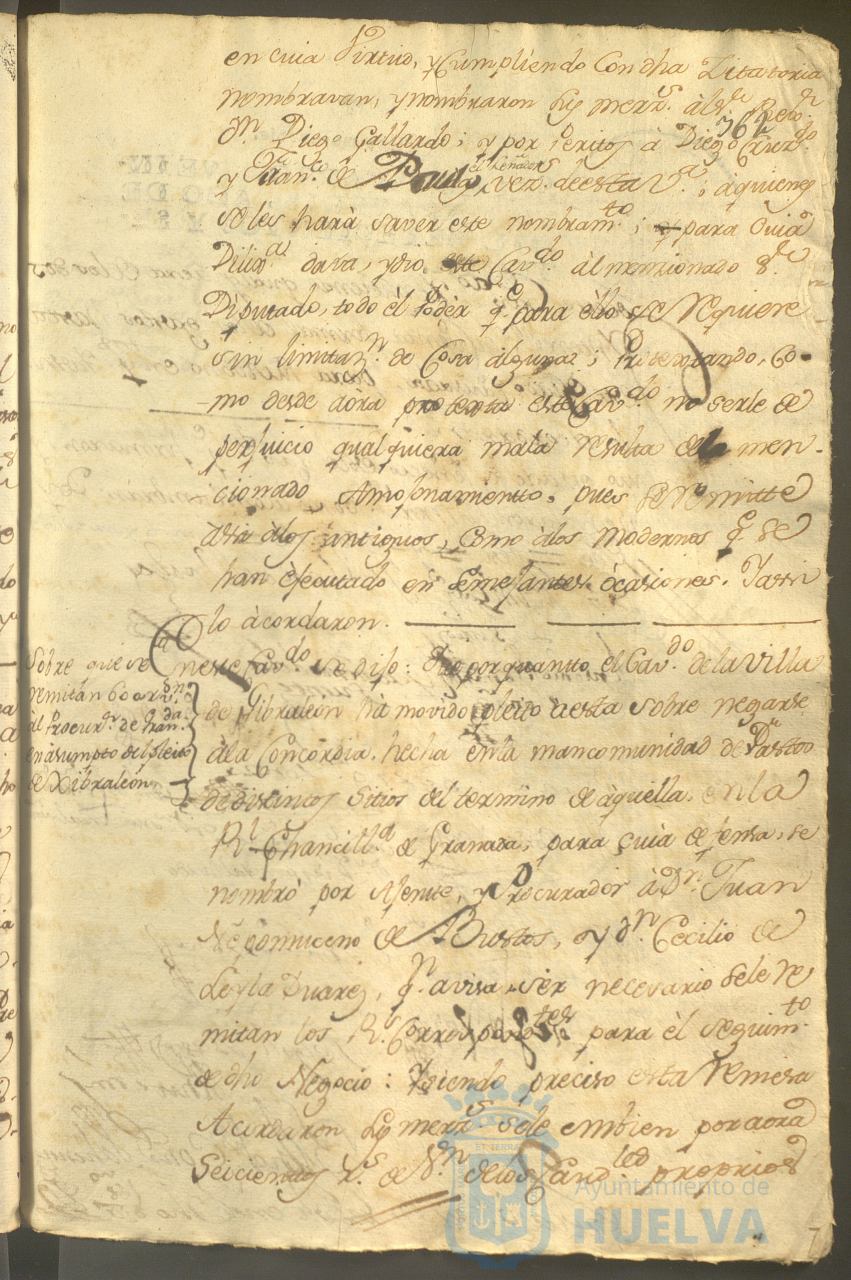 en cuia Virtud, y Cumpliendo Con dha Zitatoria
nombravan, y nombraron Sus merzs. àl Sr.
364
Dn. Diego Gallardo; y por Peritos à Diego
y Franco. de Paula, vezs. de esta Va., à quienes
se les harà saver este nombramto; para Cuia
Diliga. dava, y dio este Cavdo àl menzionado Sr.
Diputado, todo èl Podèr qe para èllo se Requiere
sin limitazn. de Cosa àlguna; Protextando, co-
mo desde aòra protexta este Cavdo no serle de
perjuicio qualquiera mala resulta del men-
cionado Amojonamiento, pues se Remitte
àsia àlos antiguos, como àlos modernos qe se
han èjecutado en Semejantes òcasiones. Y assi
lo àcordaron.
Sobre que se
remitan 600 rs. vn.
al Procurr. de Granda.
en asumpto del pleito
de Xibraleòn
En este Cavdo se dijo: Que por quanto el Cavdo. de la Villa
de Gibraleòn hà movido pleito a esta sobre negarse
àla Concordia, hecha en la mancomunidad de Pastos
de distintos Sitios del termino de àquella, en la
Rl. Chancilla. de Granada, para cuia defensa, se
nombrò por Ajente, y Procurador à Dn. Juan
Nepomuceno de Bustos, y Dn. Cecilio de
Leyla Suarez, qn. avisa ser necesario se le re-
mitan los Rs. Correspondtes para èl seguimto.
de dho Negocio: Y siendo preciso esta remesa
Acordaron Sus merzs se le embien por aora
Seicientos rs. de Vn. de los Caudles. proprios
Ayuntamiento de
HUELVA